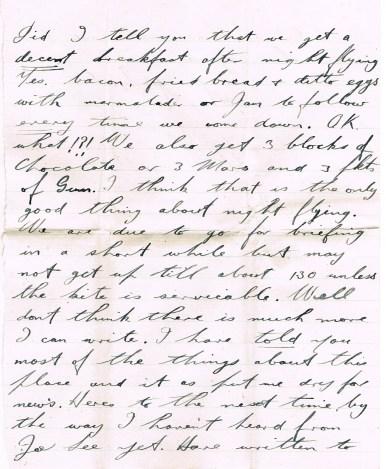 Did I tell you that we get a
decent breakfast after night flying
Yes, bacon, fried bread & ditto eggs
with marmalade or Jam to follow
every time we come down. OK.
what !?! We also get 3 blocks of
Chocolate or 3 Mars and 3 pkts
of Gum. I think that is the only
good thing about night flying.
We are due to go for briefing
in a short while but may
not get up till about 130 unless
the kite is servicable. Well
dont think there is much more
I can write. I have told you
most of the things about this
place and it as put me dry for
news. Heres to the next time by
the way I havent heard from
Joe see yet. Have written to